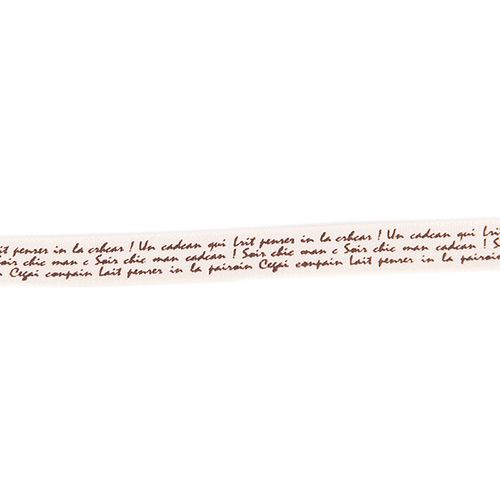 it penser in la crhcar ! Un cadcan qui lrit penser in la crhcar ! Un cadcan qui lrit
oir chic man c Soir chic man cadcan ! Soir chic man c Soir chic man cadcan ! S
n Cegai compain lait penser in la pairoin Cegai compain lait penser in la pairoin